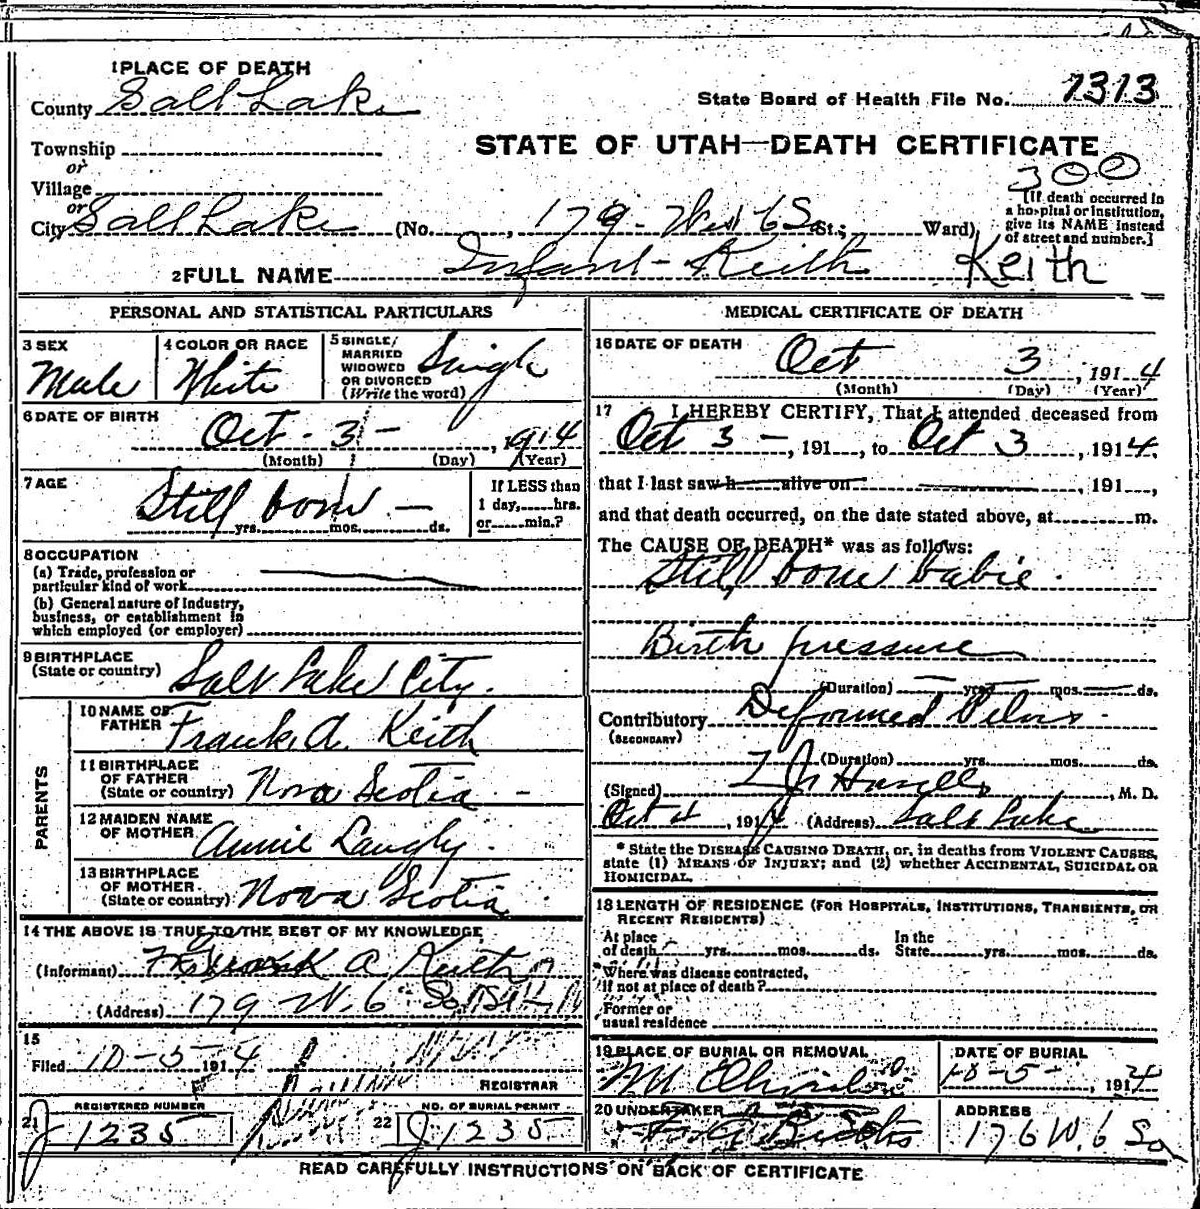 1 PLACE OF DEATH
County Salt Lake
State Board of Health File No. 1313
STATE OF UTAH—DEATH CERTIFICATE
300
Township
or
Village
or
City Salt Lake (No. , 179 West 6 So St.; Ward)
[If death occurred in
a hospital or institution,
give its NAME instead
of street and number.]
2 FULL NAME Infant Keith Keith
PERSONAL AND STATISTICAL PARTICULARS
3 SEX
Male
4 COLOR OR RACE
White
5 SINGLE,
MARRIED
WIDOWED
OR DIVORCED
(Write the word)
Single
6 DATE OF BIRTH
Oct - 3 - , 1914
(Month) (Day) (Year)
7 AGE
Still born -
yrs. mos. ds.
If LESS than
1 day, hrs.
or min.?
8 OCCUPATION
(a) Trade, profession or
particular kind of work
(b) General nature of industry,
business, or establishment in
which employed (or employer)
9 BIRTHPLACE
(State or country) Salt Lake City.
PARENTS
10 NAME OF
FATHER Frank. A. Keith
11 BIRTHPLACE
OF FATHER
(State or country) Nova Scotia -
12 MAIDEN NAME
OF MOTHER Annie
13 BIRTHPLACE
OF MOTHER
(State or country) Nova Scotia
14 THE ABOVE IS TRUE TO THE BEST OF MY KNOWLEDGE
(Informant) Frank A. Keith
(Address) 179 W. 6 So.
15
Filed 10-5- 1914
REGISTRAR
REGISTERED NUMBER
21 J 1235
NO. OF BURIAL PERMIT
22 J 1235
MEDICAL CERTIFICATE OF DEATH
16 DATE OF DEATH
Oct 3 , 1914
(Month) (Day) (Year)
17 I HEREBY CERTIFY, That I attended deceased from
Oct 3 - , 191 , to Oct 3 , 1914.
that I last saw h alive on , 191 ,
and that death occurred, on the date stated above, at m.
The CAUSE OF DEATH* was as follows:
Still born babie.
Birth pressure
(Duration) yrs. mos. ds.
Contributory Deformed Pelvis.
(SECONDARY)
(Duration) yrs. mos. ds.
(Signed) , M. D.
Oct 4 , 1914 (Address) Salt Lake
* State the DISEASE CAUSING DEATH, or, in deaths from VIOLENT CAUSES,
state (1) MEANS OF INJURY; and (2) whether ACCIDENTAL, SUICIDAL OR
HOMICIDAL.
18 LENGTH OF RESIDENCE (FOR HOSPITALS, INSTITUTIONS, TRANSIENTS, OR
RECENT RESIDENTS)
At place
of death yrs. mos. ds.
In the
State yrs. mos. ds.
Where was disease contracted,
If not at place of death?
Former or
usual residence
19 PLACE OF BURIAL OR REMOVAL
DATE OF BURIAL
10-5- , 1914
20 UNDERTAKER
ADDRESS
176 W. 6 So
READ CAREFULLY INSTRUCTIONS ON BACK OF CERTIFICATE